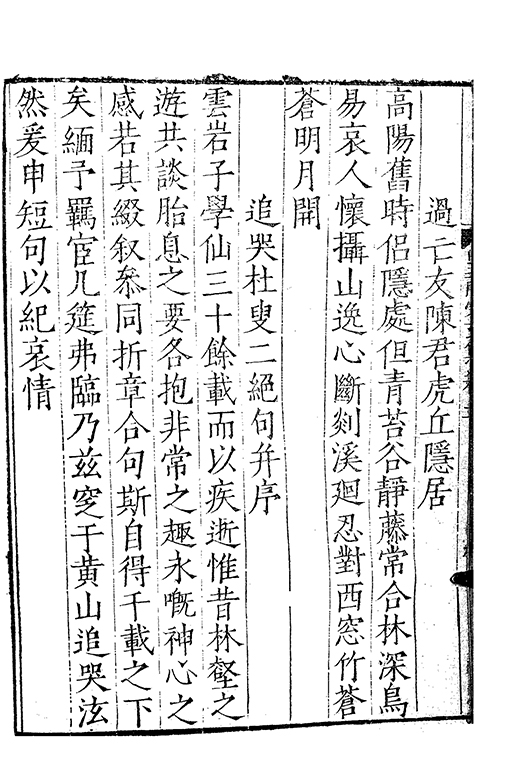 過亡友陳君虎丘隱居
高陽舊時侶隱處但青苔谷靜藤常合林深鳥
易哀人懷攝山逸心斷剡溪廻忍對西窓竹蒼
蒼明月開
追哭杜叟二絕句并序
雲岩子學仙三十餘載而以疾逝惟昔林壑之
遊共談胎息之要各抱非常之趣永嘅神心之
感若其綴叙叅同折章合句斯自得千載之下
矣緬予羈宦几筵弗臨乃茲窆于黃山追哭泫
然爰申短句以紀哀情